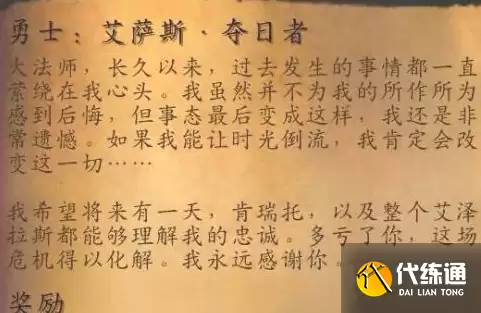 勇士：艾萨斯·夺日者
大法师，长久以来，过去发生的事情都一直
萦绕在我心头。我虽然并不为我的所作所为
感到后悔，但事态最后变成这样，我还是非
常遗憾。如果我能让时光倒流，我肯定会改
变这一切……
我希望将来有一天，肯瑞托，以及整个艾泽
拉斯都能够理解我的忠诚。多亏了你，这场
危机得以化解。我永远感谢你。
奖励
代练通
DAI LIAN TONG